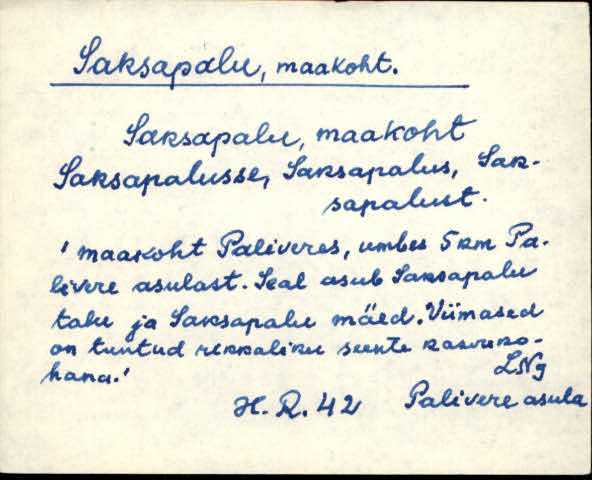 Saksapalu, maakoht.
Saksapalu, maakoht
Saksapalusse, Saksapalus, Sak-
sapalust.
'maakoht Paliveres, umbes 5 km Pa-
livere asulast. Seal asub Saksapalu
talu ja Saksapalu mäed. Viimased
on tuntud rikkaliku seente kasvuko-
hana.'
LNg
H. R. 42 Palivere asula